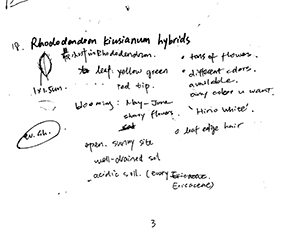 18. Rhododendron kiusianum hybrids
Rhododendron.
leaf: yellow green
red tip.
1x1.5cm.
blooming: May-June
showy flowers
ev. sh.
open. sunny site
well-drained soil
acidic soil. (every
Ericaceae)
• tons of flowers.
• different colors
available.
any colors u want.
'Hino White'.
• leaf edge hair
3